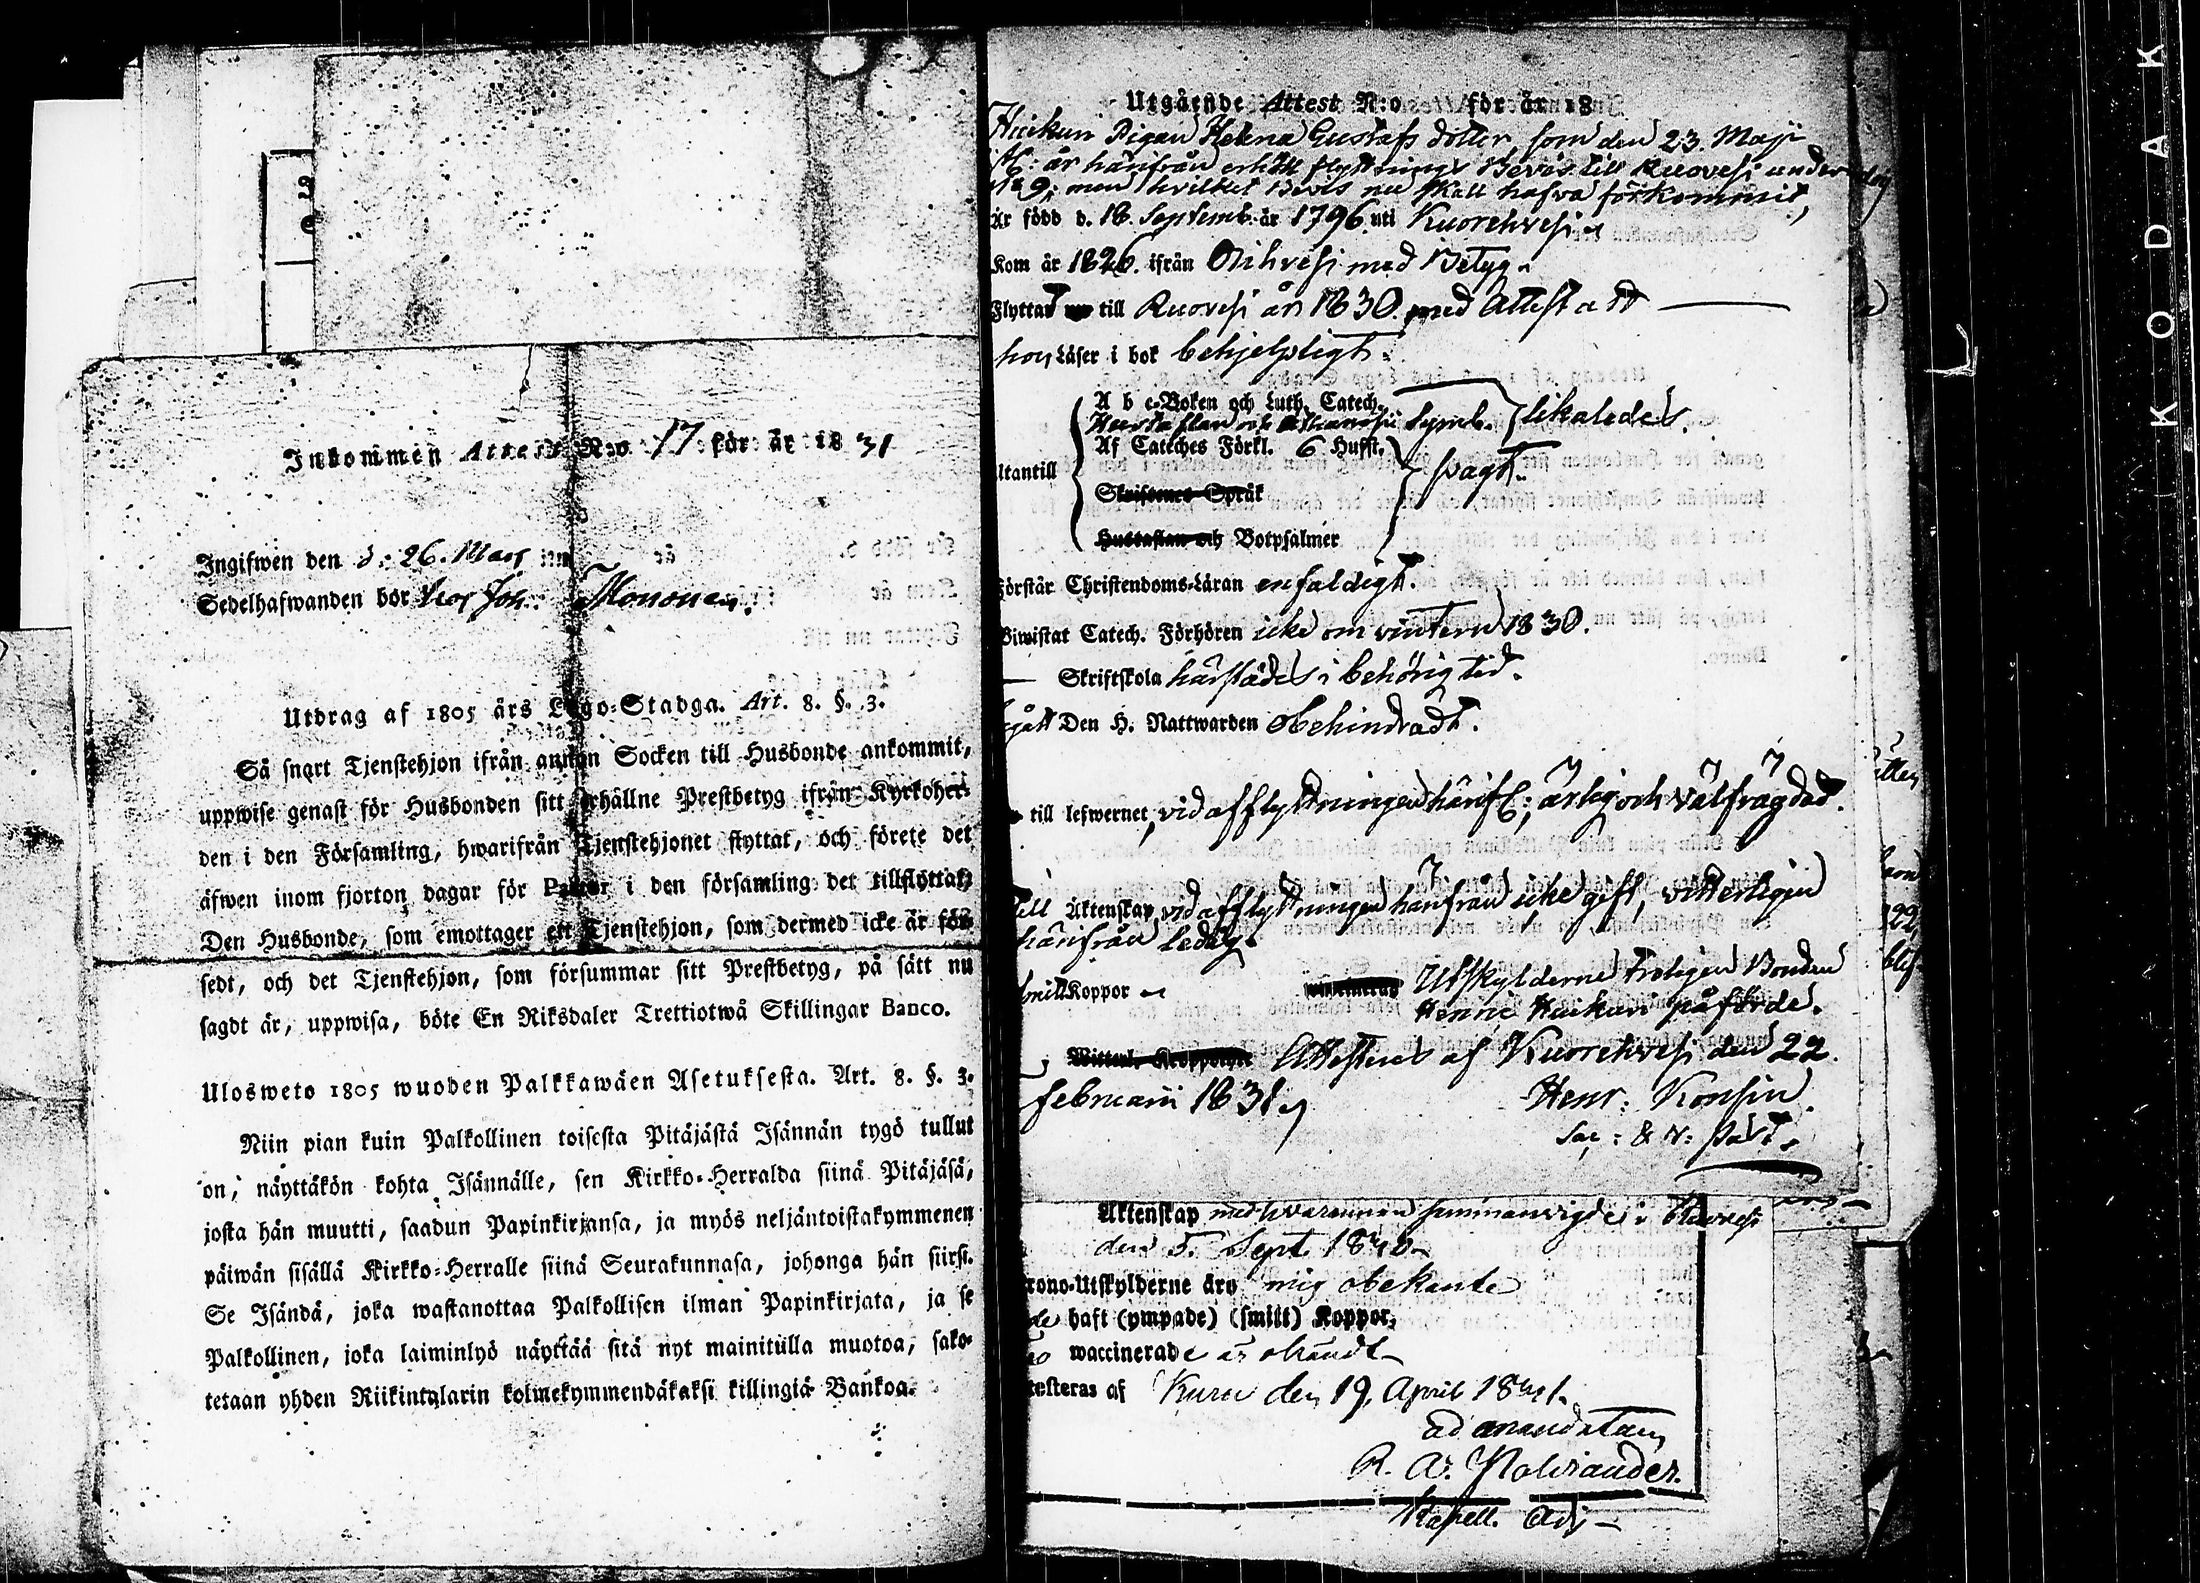 Inkommen Attest N:o 17 för år 1831
Ingifwen den d. 26. Mars
Sedelhafwanden bor hos Joh. Mononen.
Utdrag af 1805 års Lego-Stadga. Art. 8. §. 3.
Så snart Tjenstehjon ifrån annan Socken till Husbonde ankommit,
uppwise genast för Husbonden sitt erhållne Prestbetyg ifrån Kyrkoher-
den i den Församling, hwarifrån Tjenstehjonet flyttat, och förete det
äfwen inom fjorton dagar för Pastor i den församling det tillflyttat;
Den Husbonde, som emottager ett Tjenstehjon, som dermed icke är för-
sedt, och det Tjenstehjon, som försummar sitt Prestbetyg, på sätt nu
sagdt är, uppwisa, böte En Riksdaler Trettiotwå Skillingar Banco.
Ulosweto 1805 wuoden Palkkawäen Asetuksesta. Art. 8. §. 3.
Niin pian kuin Palkollinen toisesta Pitäjästä Isännän tygö tullut
on, näyttäkön kohta Isännälle, sen Kirkko-Herralda siinä Pitäjäsä,
josta hän muutti, saadun Papinkirjansa, ja myös neljäntoistakymmenen
päiwän sisällä Kirkko-Herralle siinä Seurakunnasa, johonga hän siirsi.
Se Isändä, joka wastanottaa Palkollisen ilman Papinkirjata, ja se
Palkollinen, joka laiminlyö näyttää sitä nyt mainitulla muotoa, sako-
tetaan yhden Riikintalarin kolmekymmendäkaksi killingiä Bankoa.
Utgående Attest N:o för år 18
Pigan Helena Gustafs dotter, som den 23. Maji
år härifrån erhållit flyttnings Bevis till Ruovesi under
N:o 9; men hvilket Bevis nu skall hafva förkommit,
Är född d. 18. Septemb. år 1796. uti Kuorehvesi
Kom år 1826. ifrån Orihvesi med Betyg
Flyttat till Ruovesi år 1830. med Attest att
hon Läser i bok behjelpligt.
A b c-Boken och Luth. Catech.
Hustaflan och Athanasii Symb. likaledes.
Af Cateches Förkl. 6 Hufst.
Utantill svagt.
Skriftenes Språk
Hustaflan och Botpsalmer
Förstår Christendoms-Läran enfaldigt.
Biwistat Catech. Förhören icke om vintern 1830.
Skriftskola härstädes i behörig tid.
Den H. Nattwarden obehindradt.
till lefwernet, vid afflyttningen härifr; ärlig och välfrägdad.
Till Äktenskap, vid afflyttningen härifrån icke gift, vitterligen
härifrån ledig.
Koppor Utskylderne troligen Bonden
Henric påförde.
Attesteras af Kuorehvesi den 22.
Februarii 1831
Henr: Konsin.
Sac: & v: Past.
Äktenskap med hvarannan sammanvigde i
den 5. Sept. 1840
Krono-Utskylderne äro mig obekante
haft (ympade) (smitt) Koppor,
waccinerade är okändt
Attesteras af Kuru den 19. April 1841.
ad mandatum
Kapell. Adj
KODAK